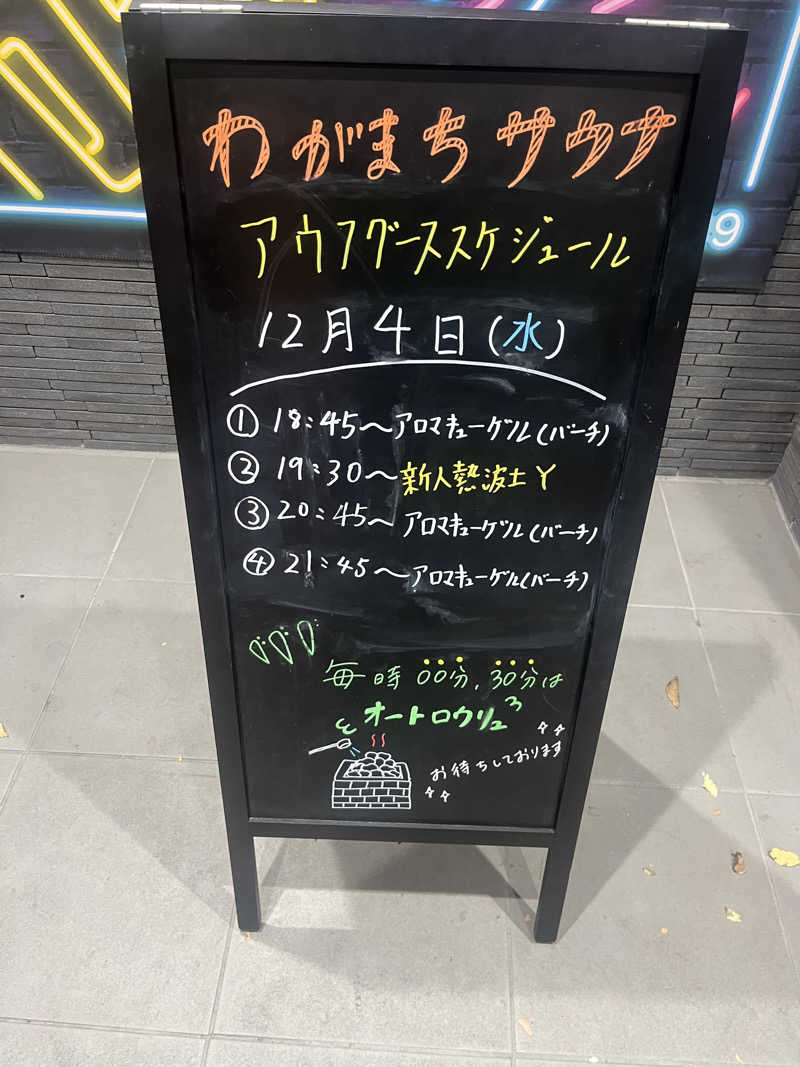 わがまちサウナ
アウフグーススケジュール
12月4日(水)
① 18:45〜アロマキューゲル(バーチ)
② 19:30〜新人熱波士Y
③ 20:45〜アロマキューゲル(バーチ)
④ 21:45〜アロマキューゲル(バーチ)
毎時00分、30分は
オートロウリュ
お待ちしております
9